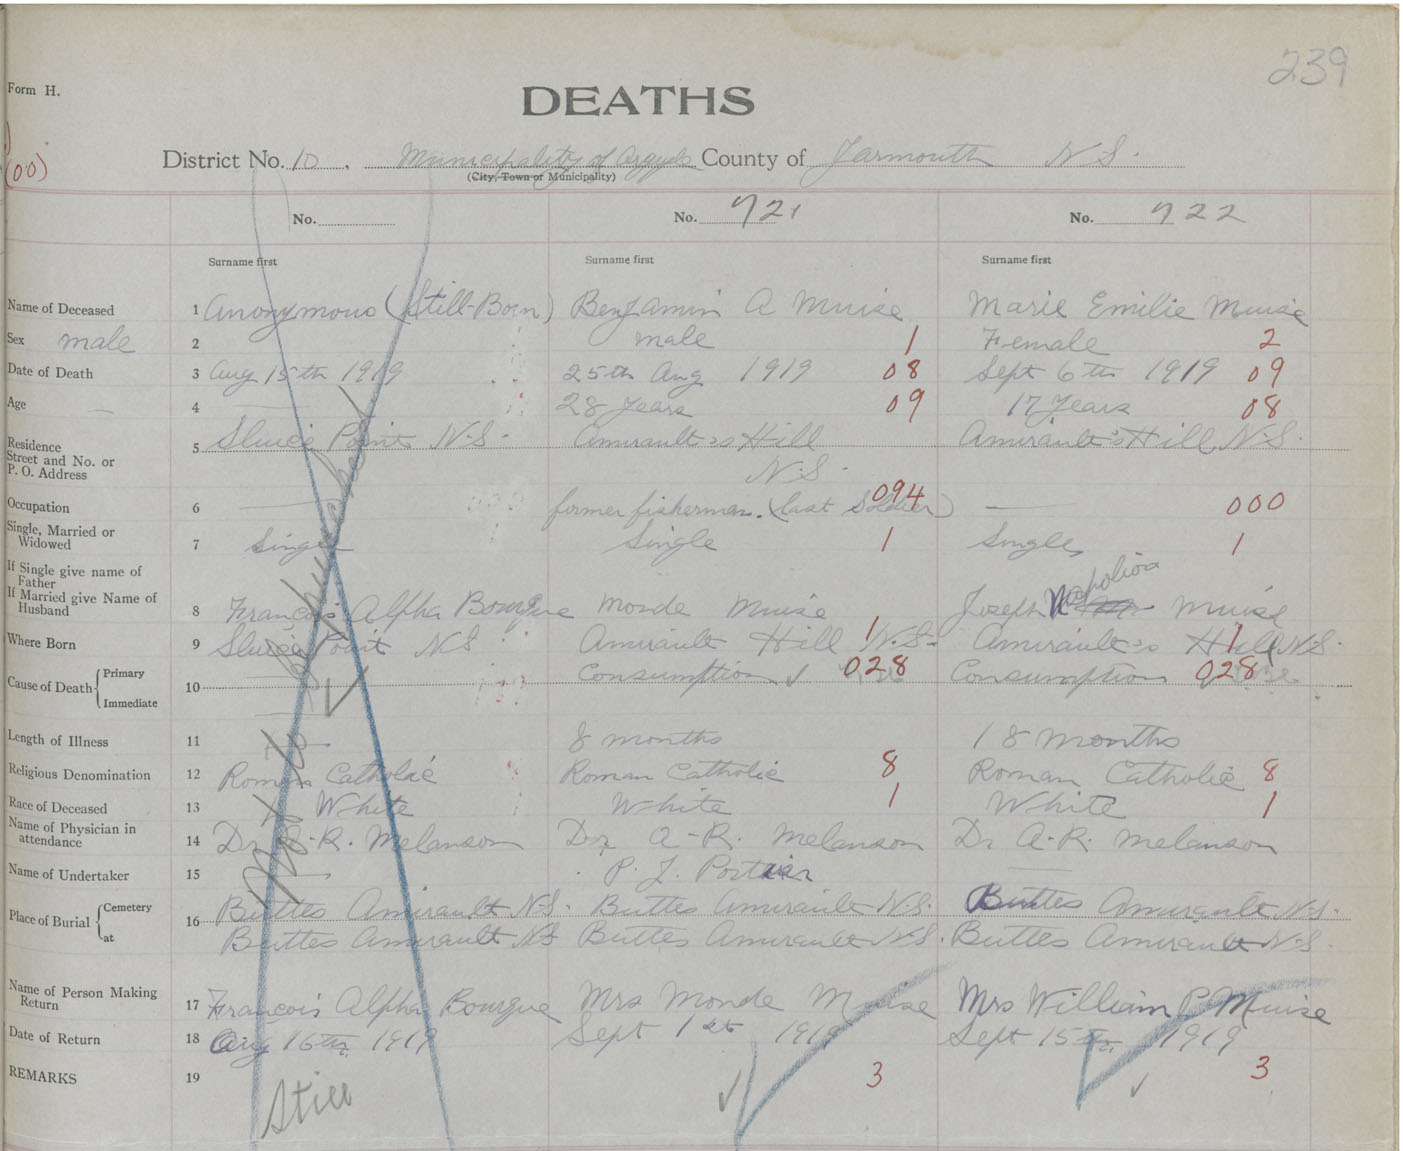 239
Form H.
DEATHS
(00)
District No. 10. Municipality of Argyle County of Yarmouth N S.
(City, Town or Municipality)
No. No. 721 No. 722
Surname first Surname first Surname first
Name of Deceased 1 Anonymous (Still-Born) Benjamin A Muise Marie Emilie Muise
Sex male 2 male 1 Female 2
Date of Death 3 Aug 15th 1919 25th Aug 1919 08 Sept 6th 1919 09
Age 4 28 Years 09 17 Years 08
Residence
Street and No. or
P. O. Address
5 Sluice Point N-S- Amirault's Hill Amirault's Hill N.S.
N.S.
Occupation 6 former fisherman. (last Soldier) 094 000
Single, Married or
Widowed
7 Single Single 1 Single 1
If Single give name of
Father
If Married give Name of
Husband
8 Francois Alpha Bourque Monde Muise Joseph Napolion Muise
Where Born 9 Sluice Point NS Amirault Hill N.S- 1 Amirault's Hill N.S. 1
Cause of Death Primary
Immediate
10 Consumption 028 Consumption 028
Length of Illness 11 8 months 18 months
Religious Denomination 12 Roman Catholic Roman Catholic 8 Roman Catholic 8
Race of Deceased 13 White White 1 White 1
Name of Physician in
attendance
14 Dr A-R. Melanson Dr A-R. Melanson Dr A-R. Melanson
Name of Undertaker 15 P. J.
Place of Burial Cemetery
at
16 Buttes Amirault N-S. Buttes Amirault N.S. Buttes Amirault N.S.
Buttes Amirault NS Buttes Amirault N.S. Buttes Amirault N.S.
Name of Person Making
Return
17 Francois Alpha Bourque Mrs Monde Muise Mrs William P Muise
Date of Return 18 Aug 16th 1919 Sept 1st 1919 Sept 15th 1919
REMARKS 19 3 3
Still
Not to be punched